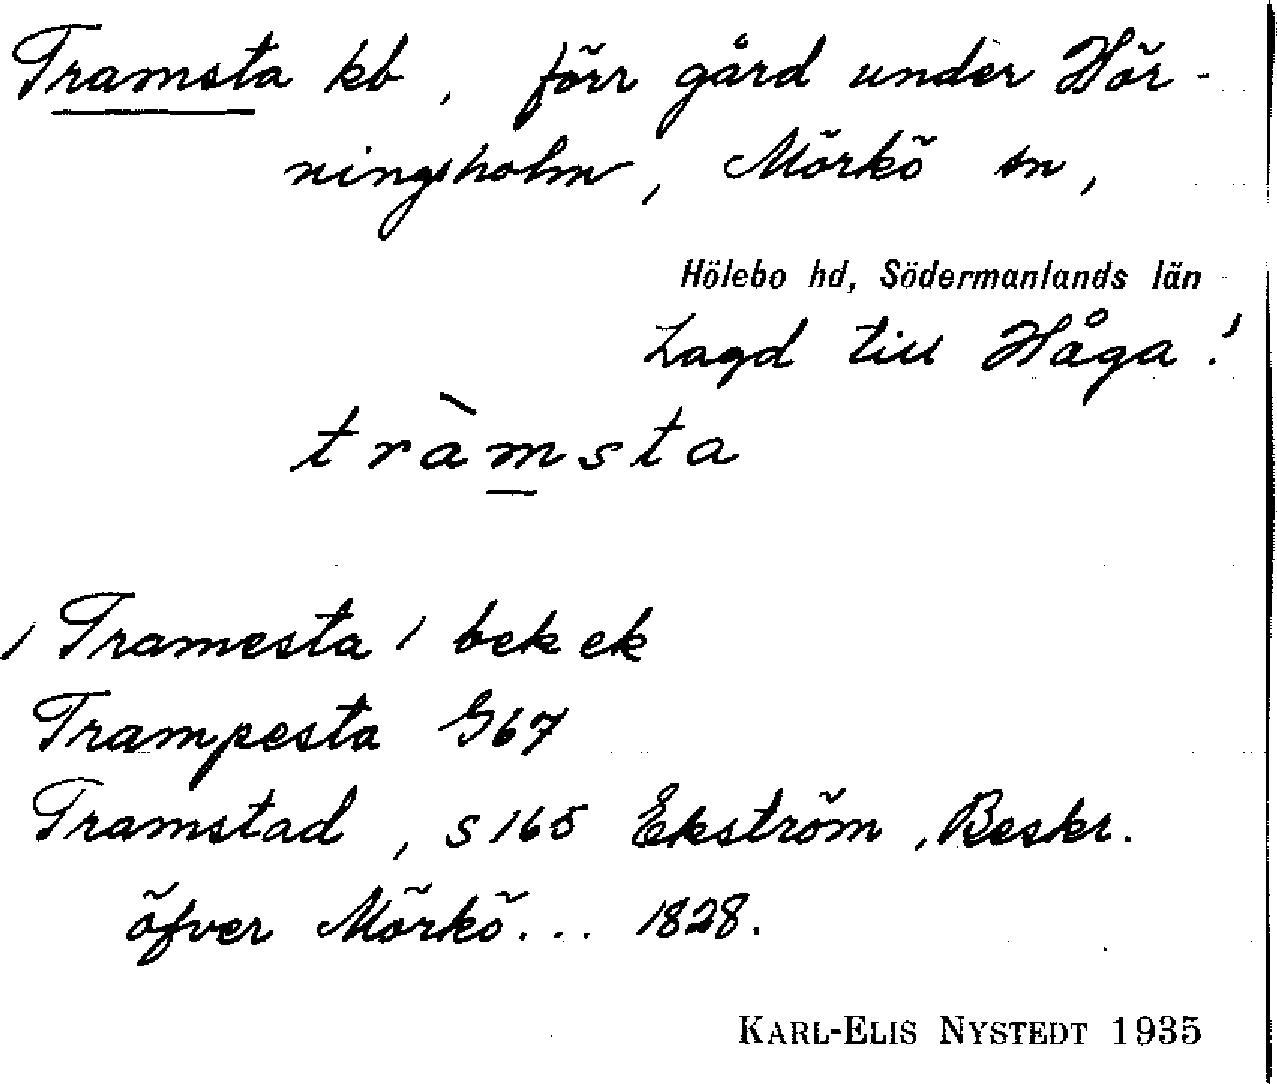 Tramsta kb, förr gård under Hör-
ningsholm, Mörkö sn,
Hölebo hd, Södermanlands län
Lagd till Håga!
tràmsta
/Tramesta/ bek ek
Trampesta G67
Tramstad, s 165 Ekström, Beskr.
öfver Mörkö... 1828.
KARL-ELIS NYSTEDT 1935